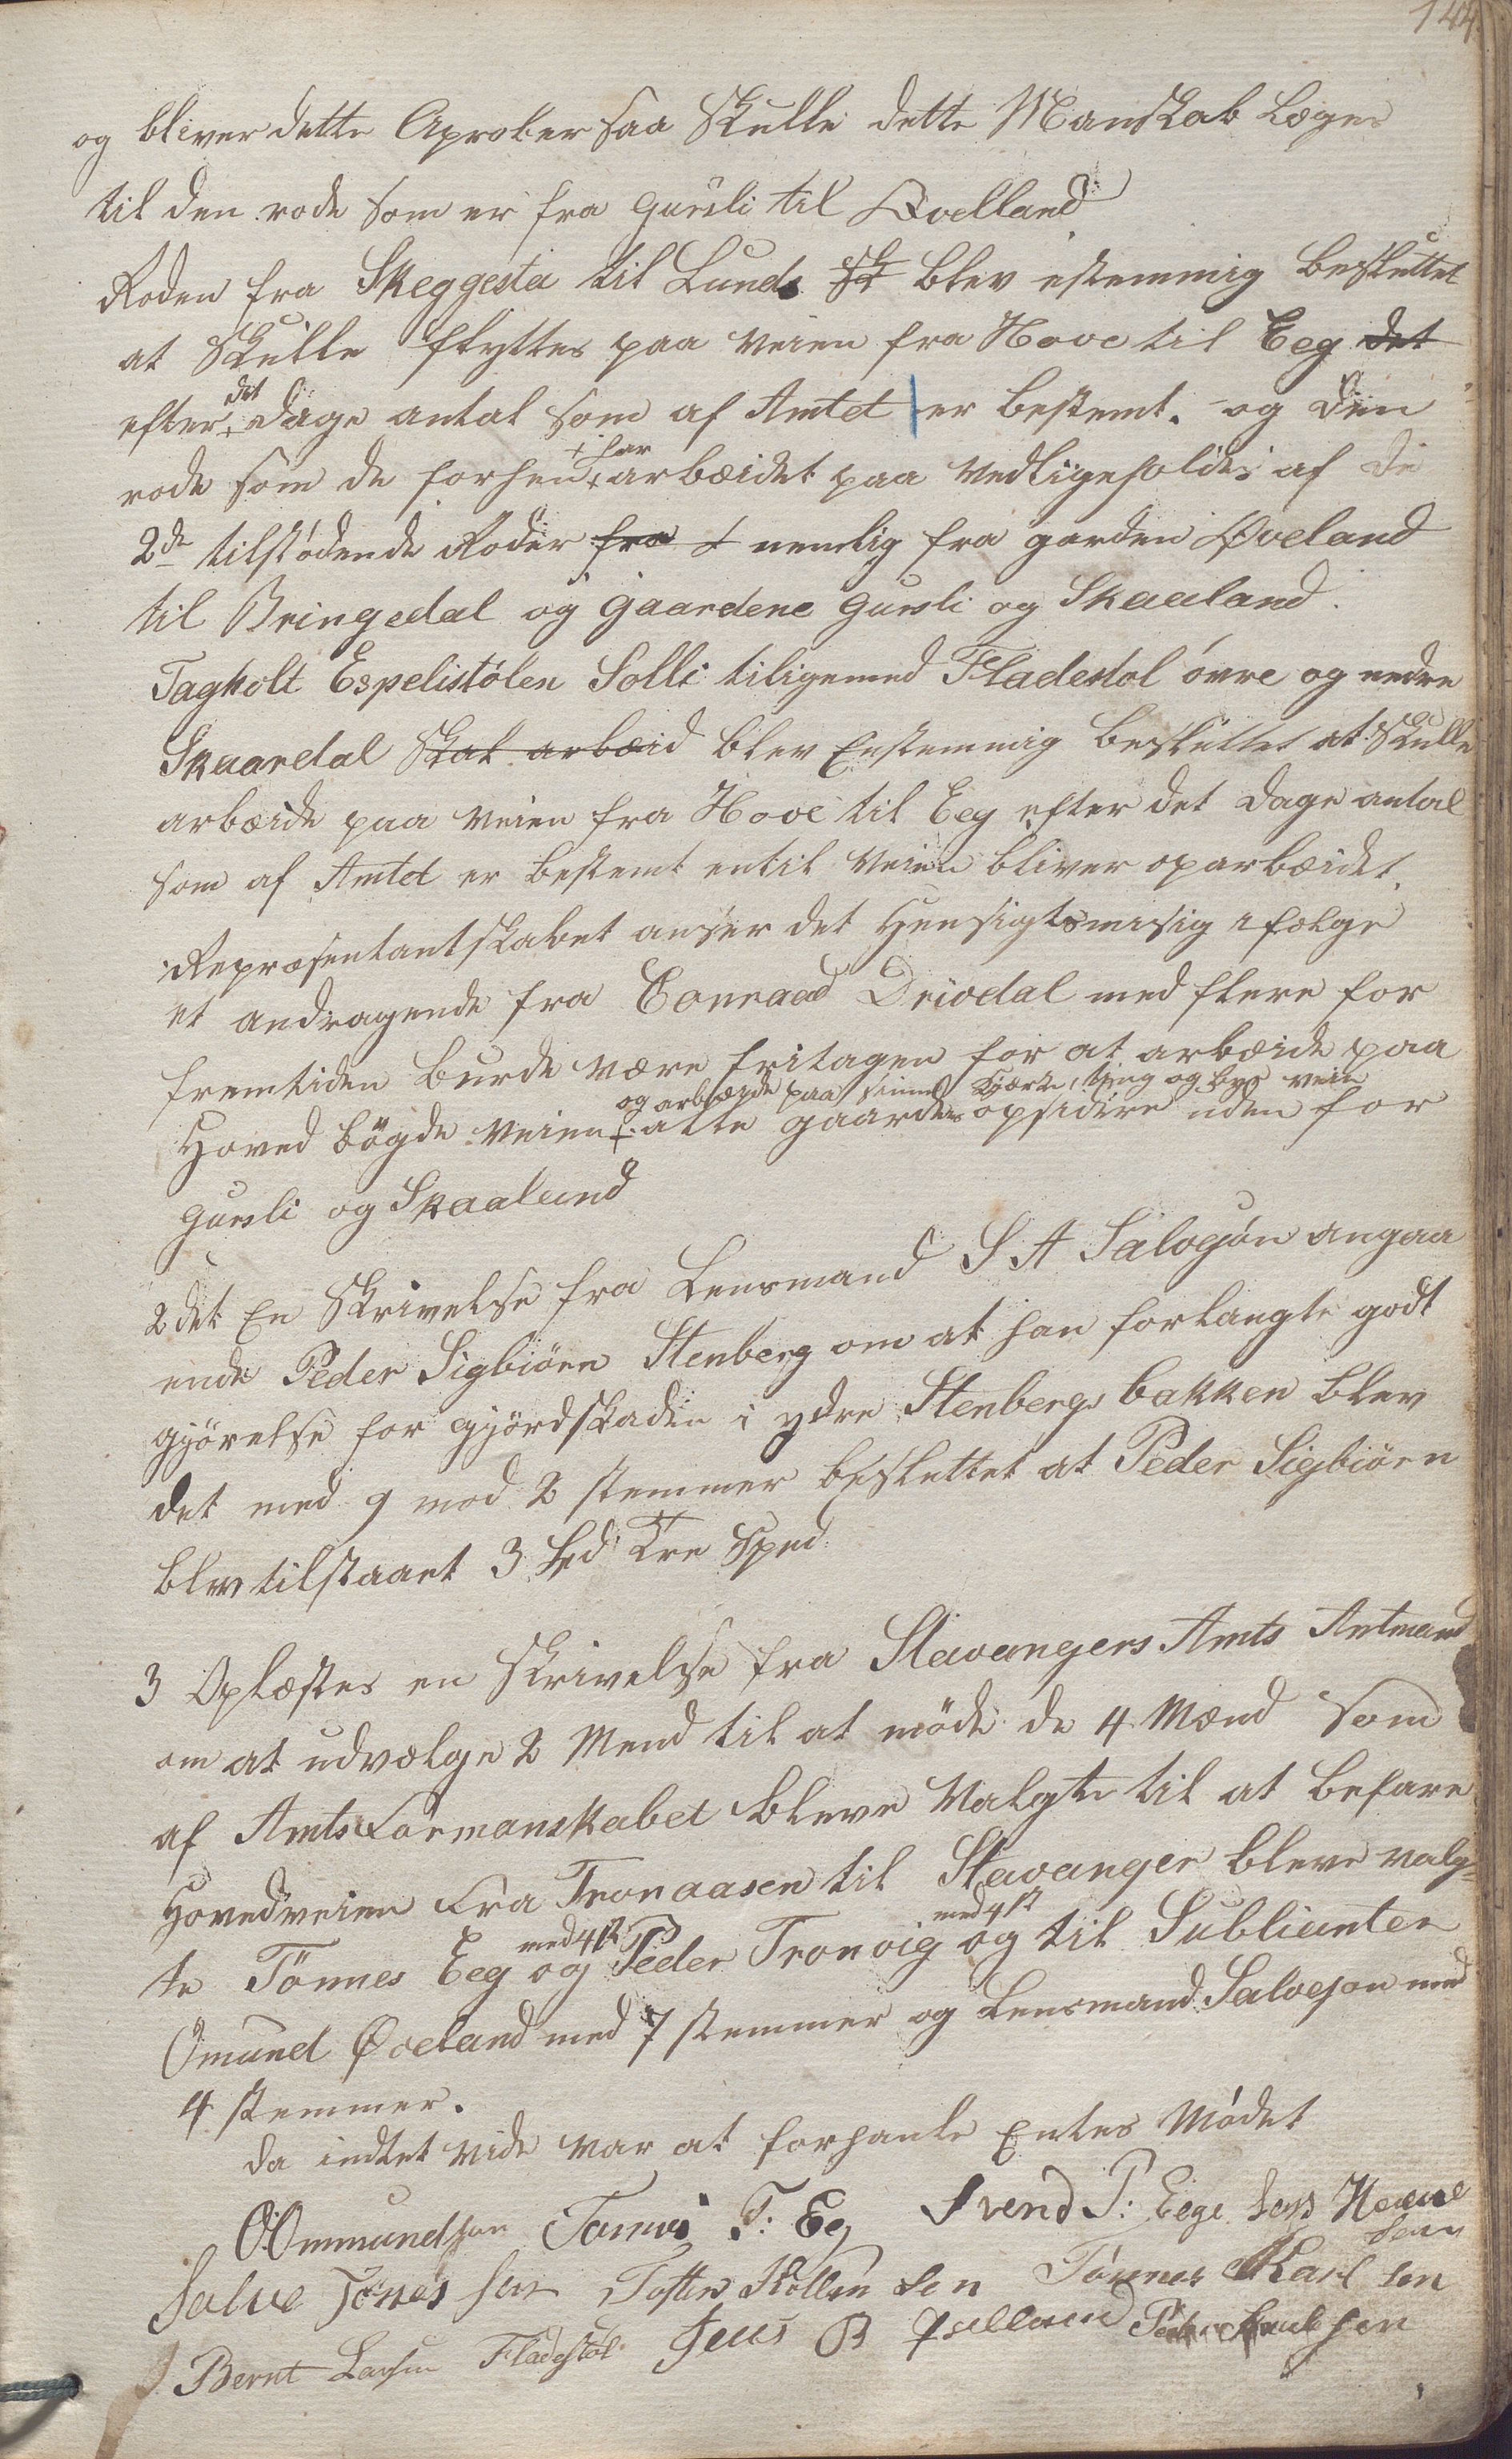 144
og bliver dette Aprober saa Skulle dette Manskab Læges
til den rode som er fra Gursli til Qvelland
Roden fra Skeggesta til Lunds St blev estemmig besluttet
at Skulle flyttes paa veien fra Hove til Eeg det
efter det dage antal som af Amtet er bestemt. og den
rode som de forhen har arbæidet paa vedligeholdes af de
2de tilstødende Roder fra nemlig fra garden Qveland
til Bringedal og Gaardene Gursli og Skaaland.
Tagholt Espelistølen Solli tiligemed Fladestol øvre og nedre
Skaardal Skal arbæid blev Enstemmig besluttet at Skulle
arbæide paa veien fra Hove til Eeg efter det dage antal
som af Amtet er bestemt entil veien bliver oparbæidet.
Repræsentantskabet anser det Hensigtsmæsig ifølge
et andragende fra Conraad Drivdal med flere for
fremtiden burde være fritagen for at arbæide paa
og arbæide paa sinne Kjørke, ting og byg veie
Hoved bøgde veien alle gaarder opsidere uden for
Gursli og Skaalund
2det En Skrivelse fra Lensmand S A Salvesøn angaa
ende Peder Sigbiörn Stenberg om at han forlangte godt
gjørelse for gjördskaden i ydre Stenbergs bakken blev
det med 9 mod 2 stemmer besluttet at Peder Sigbiörn
blev tilstaaet 3 Spd Tre Sped
3 Oplæstes en Skrivelse fra Stavangers Amts Antmand
om at udvælge 2 Mend til at møde de 4 Mænd som
af Amts Formanskabet bleve Valgte til at befare
Hovedveien Fra Tronaasen til Stavanger bleve valg-
med 4 st med 4 st
te Tönnes Eeg og Peder Tronvig og til Sublianter
Omund Qveland med 7 stemmer og Lensmand Salveson med
4 stemmer.
da indtet vide var at forhanle Entes Mødet
O Ommundsen Tønnes T: Eeg Svend P: Eege Lass Hanne
sen
Salve Tønes sen Tosten Kollen sen Tønnes Karl sen
J Bernt Larsen Fladestøl Jens B Qvelland Peder sen